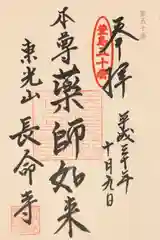 奉拝
平成三十年
十月九日
本尊薬師如来
東光山
長命寺